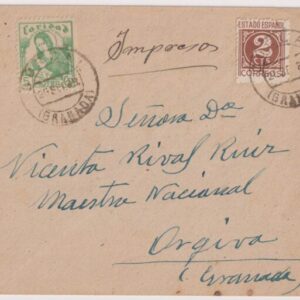 Caridad
ESTADO ESPAÑOL
2
CTS
CORREOS
(GRANADA)
Impresos
Señora Dª
Vicenta Rival Ruiz
Maestra Nacional
Orgiva
(Granada